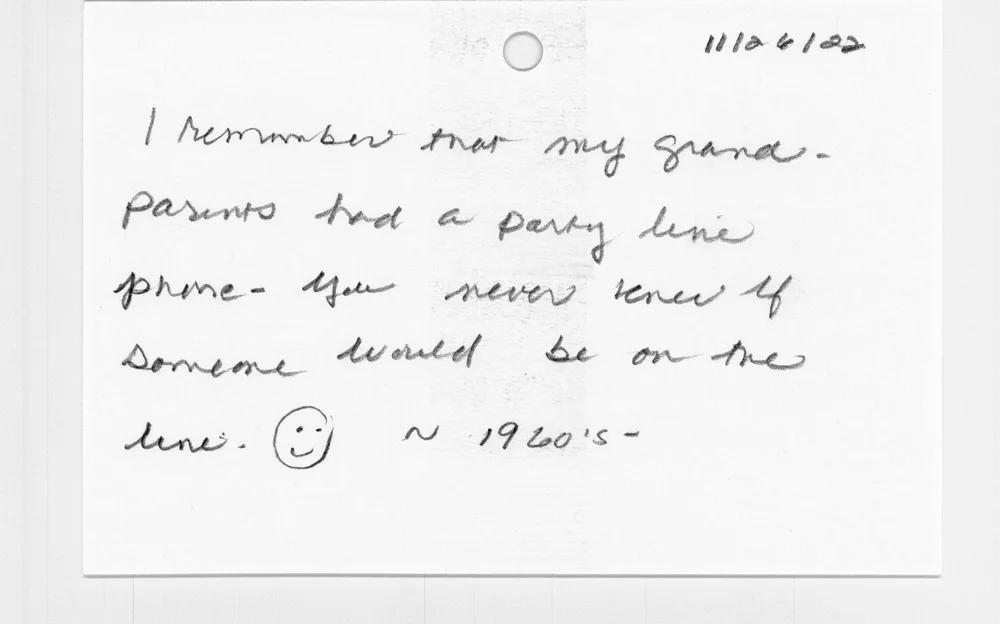 11/26/22
I remember that my grand-
parents had a party line
phone - You never knew if
someone would be on the
line. ☺ ~ 1960's -